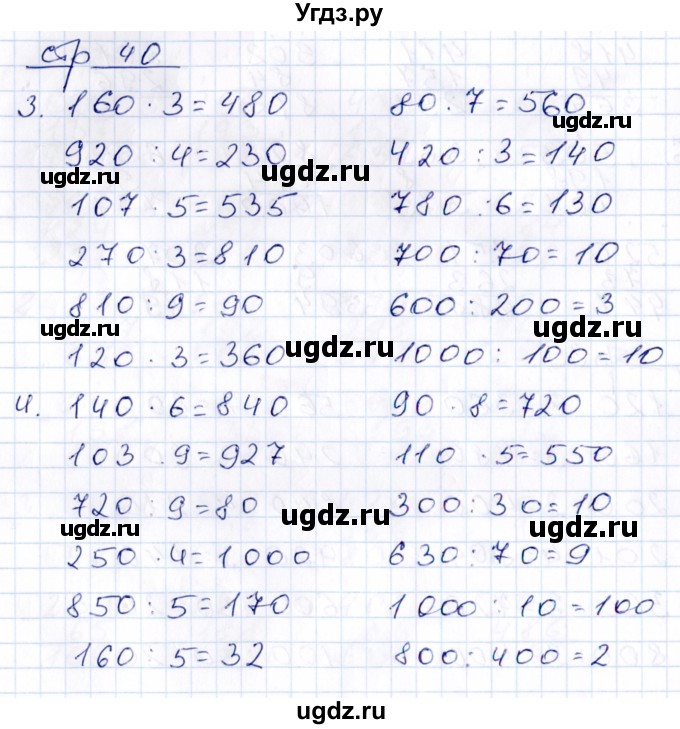 Угдз.ру
стр 40
3. 160 · 3 = 480    80 · 7 = 560
920 : 4 = 230    420 : 3 = 140
107 · 5 = 535    780 : 6 = 130
270 : 3 = 810    700 : 70 = 10
810 : 9 = 90    600 : 200 = 3
120 · 3 = 360    1000 : 100 = 10
4. 140 · 6 = 840    90 · 8 = 720
103 · 9 = 927    110 · 5 = 550
720 : 9 = 80    300 : 30 = 10
250 · 4 = 1000    630 : 70 = 9
850 : 5 = 170    1000 : 10 = 100
160 : 5 = 32    800 : 400 = 2
ugdz.ru
ugdz.ru
ugdz.ru
ugdz.ru
ugdz.ru
ugdz.ru
ugdz.ru
ugdz.ru
ugdz.ru
ugdz.ru
ugdz.ru
ugdz.ru
ugdz.ru